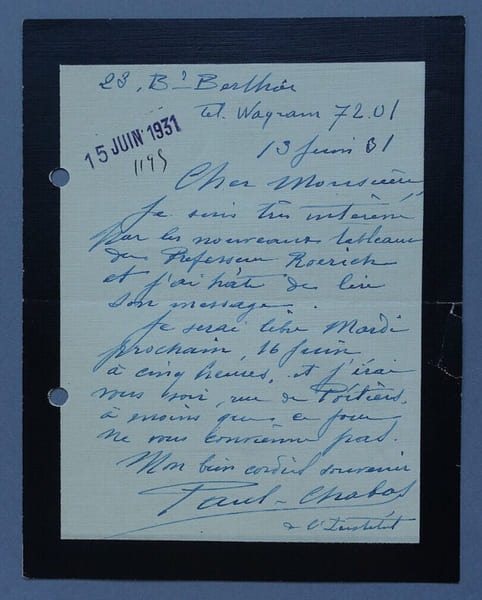 23, Bd Berthier
tel. Wagram 72.01
15 JUIN 1931
13 juin 31
1195
Cher Monsieur
Je suis très intéressé
par les nouveaux tableaux
du Professeur Roerich
et j'ai hâte de lire
son message.
Je serai libre Mardi
prochain, 16 juin,
à cinq heures, et j'irai
vous voir, rue de Poitiers,
à moins que ce jour
ne vous convienne pas.
Mon bien cordial souvenir
Paul-Chabas
de l'Institut